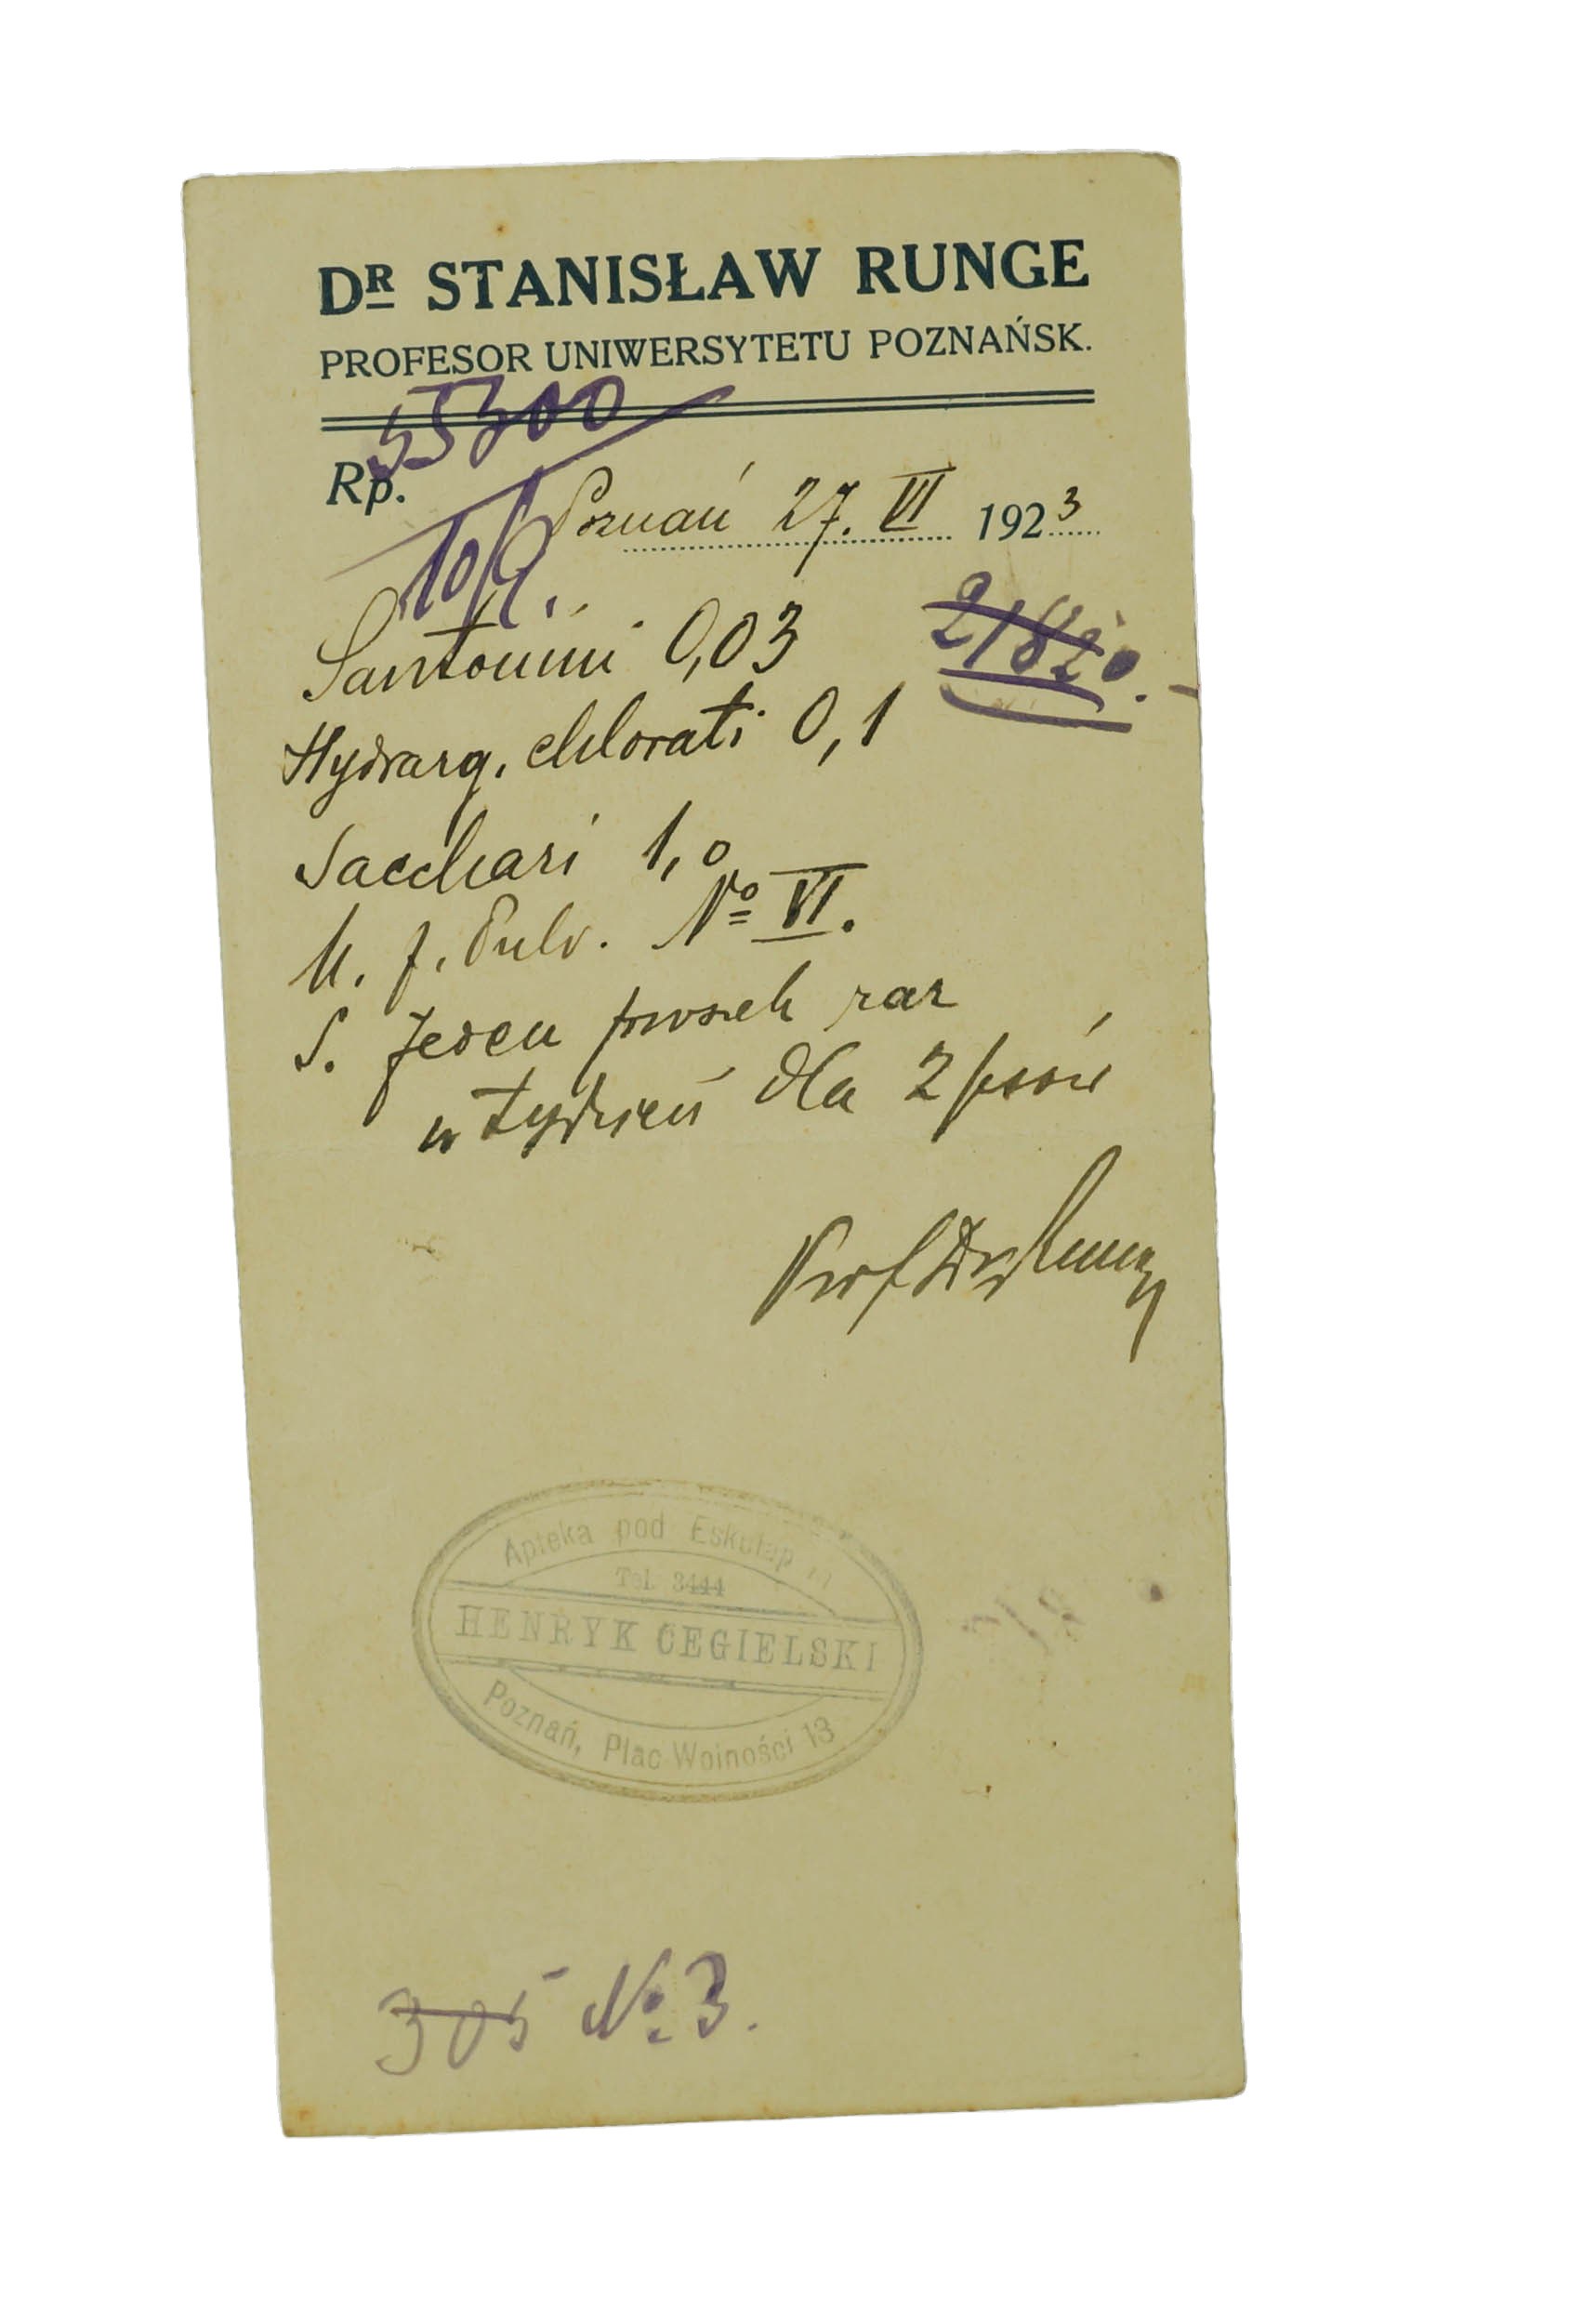 DR STANISŁAW RUNGE
PROFESOR UNIWERSYTETU POZNAŃSK.
55300
Rp.
Poznań 27. VI 1923
Santonini 0,03
21820.-
Hydrarg. chlorati 0,1
Sacchari 1,0
M. f. Pulv. No VI.
S. Jeden proszek raz
w tydzień dla 2 psów
Prof Dr Runge
Apteka pod Eskulapem
Tel. 3444
HENRYK CEGIELSKI
Poznań, Plac Wolności 13
305 No. 3.